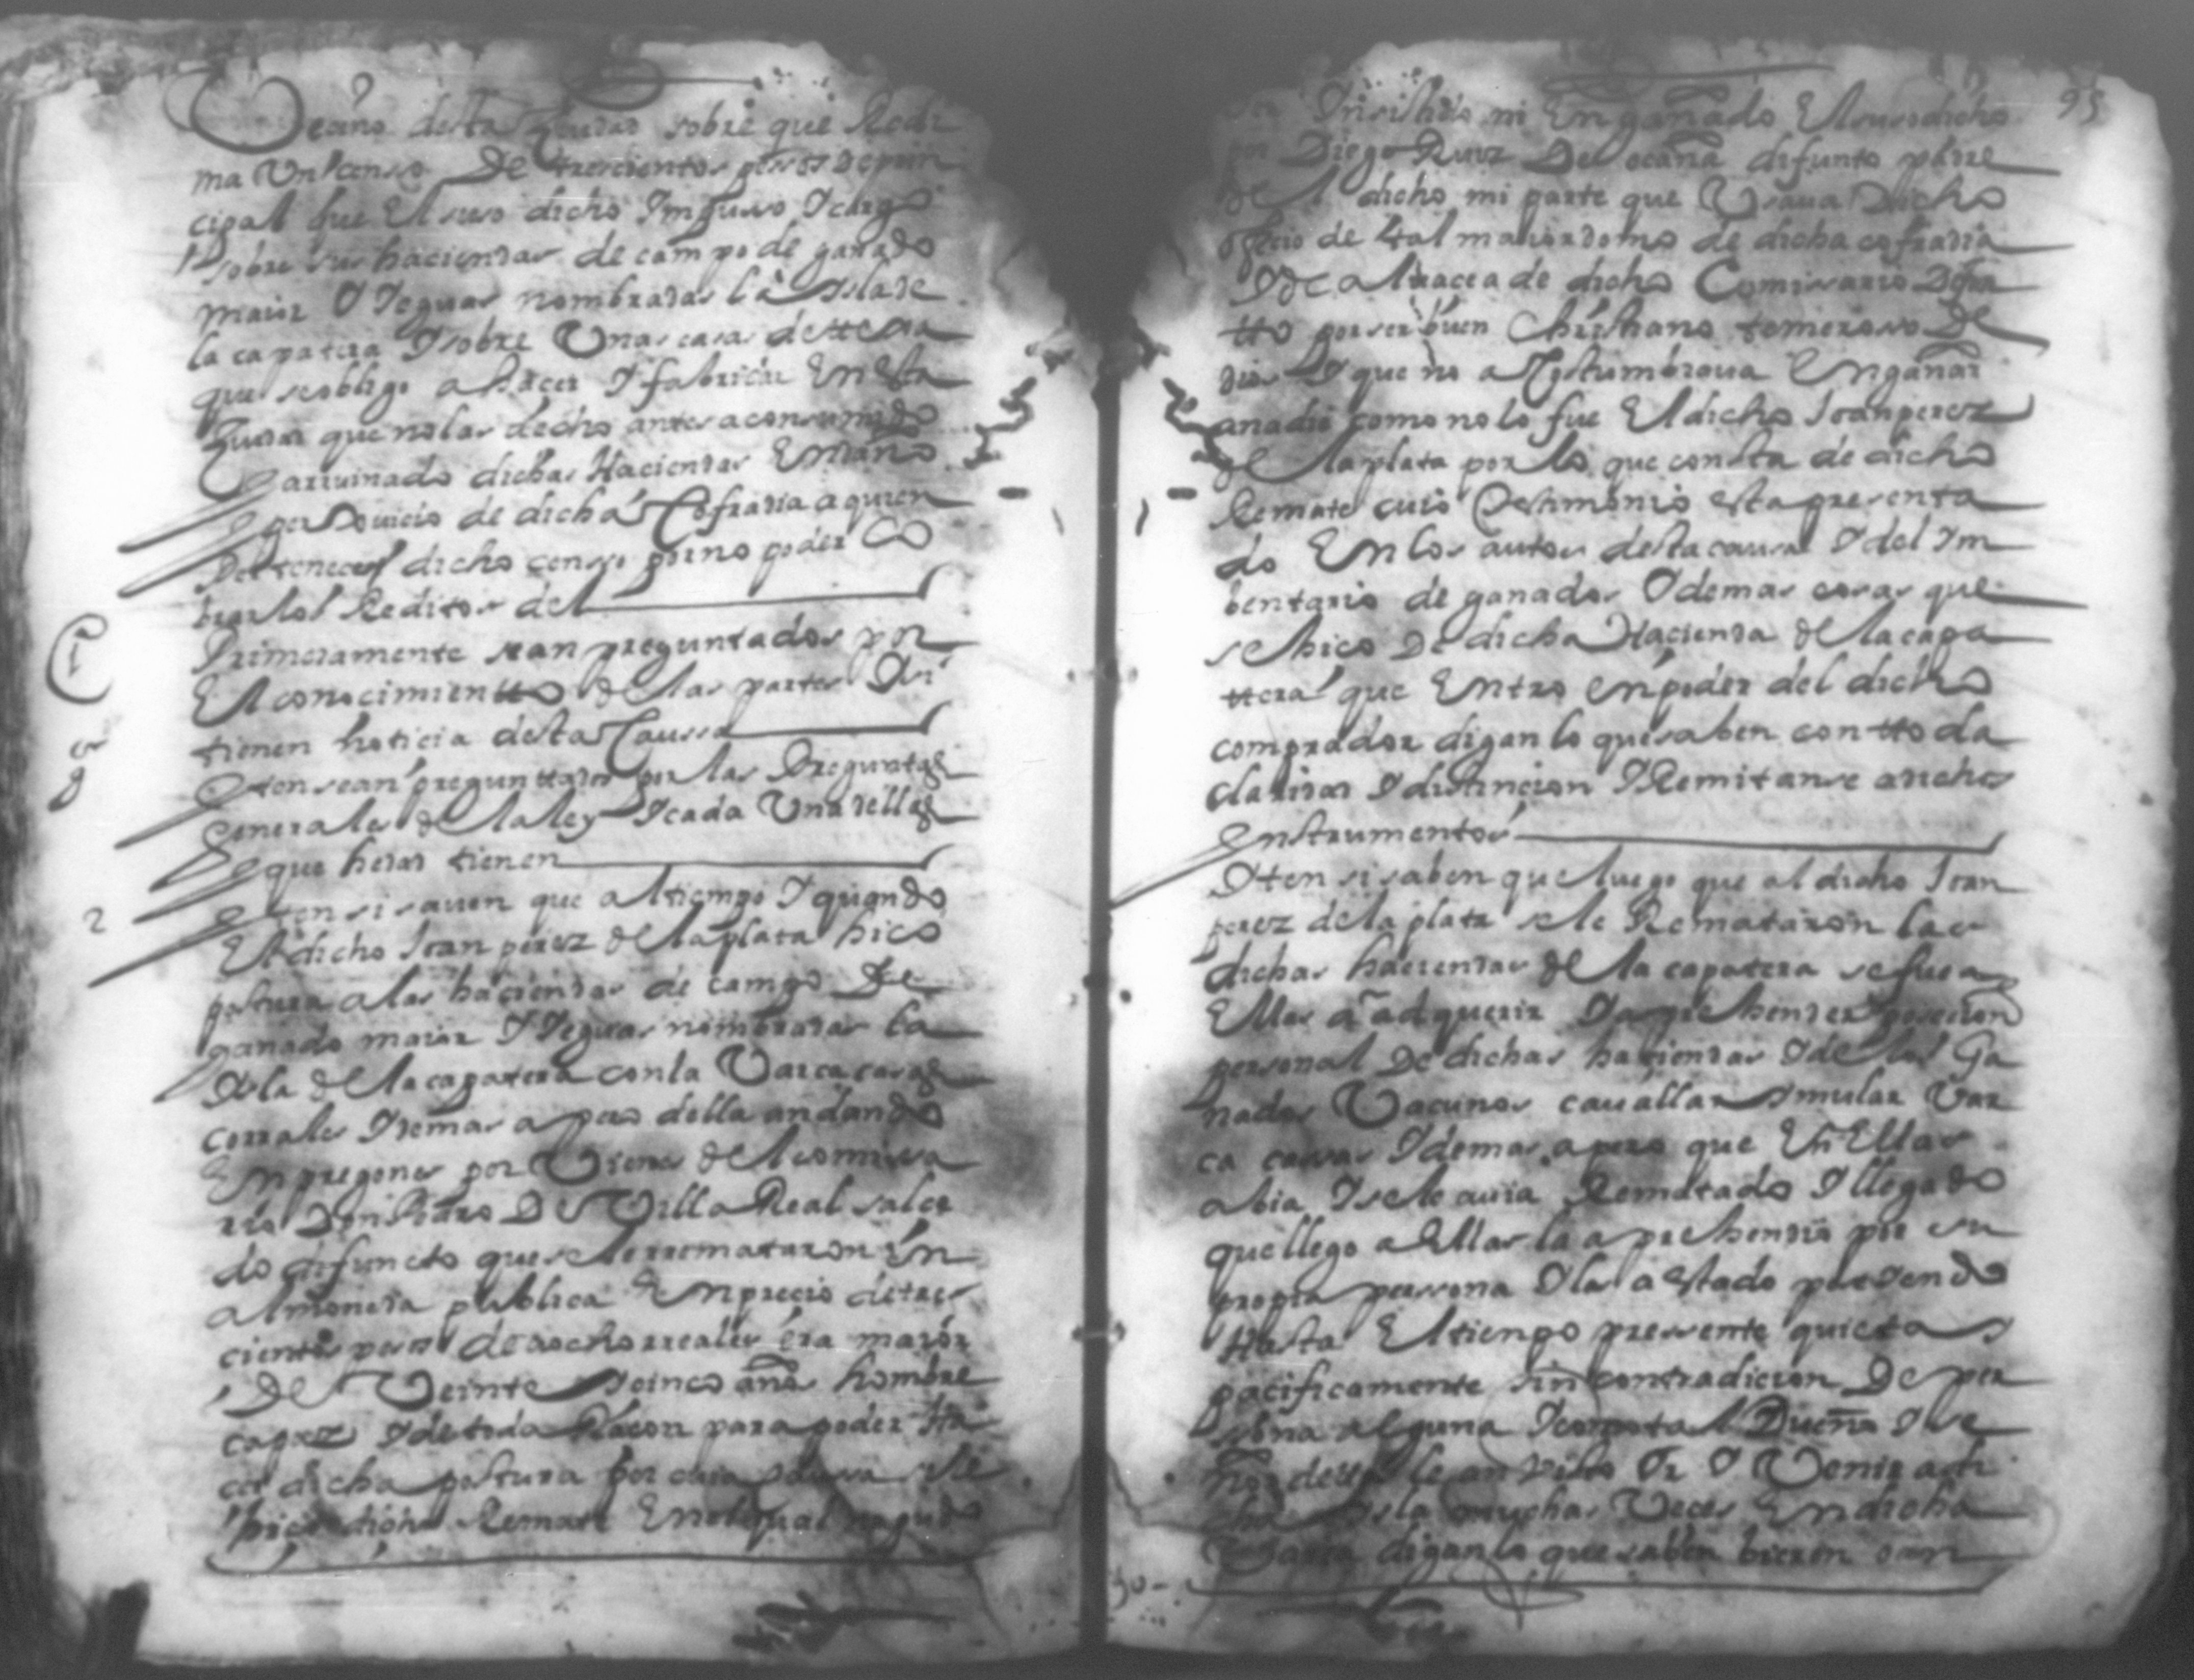 Vecino desta Ziudad sobre que Redi
ma Un censo De trescientos pessos de prin
cipal que El suso dicho Impusso I cargo
sobre sus haciendas de campo de ganado
maior I Ieguas nombradas la Isla de
la capatera I sobre Unas casas de tterra
que se obligo a hacer I fabricar En Esta
Ziudad que no las a echo antes a consumido
I arruinado dichas Haciendas En daño
I perjuicio de dicha Cofradia a quien
Pertenece el dicho censo por no poder Co
brar los Reditos del
Primeramente sean preguntados por
El conocimientto de las partes I si
tienen noticia desta Caussa
Iten sean preguntados por las Preguntas
Generales de la ley I cada Una dellas
I que hedad tienen
2 Iten si saven que al tiempo I quando
El dicho Joan perez de la plata hico
postura a las haciendas de campo De
ganado maior I Ieguas nombradas la
Isla de la capatera con la Varca casas
corrales I demas apero della andando
En pregones por Vienes del comissa
rio Don Pedro De Villa Real salce
do difuncto que se le rremataron En
almoneda publica En precio de tres
cientos pesos de a ocho rreales era maior
De Veinte I cinco años hombre
capaz I de toda Racon para poder Ha
cer dicha postura por cuia caussa se le
hico dicho Remate En el qual no pudo
95
Insilado ni Engañado El suso dicho
por Diego Ruiz De ocaña difunto padre
de el dicho mi parte que Usava Dicho
oficio de tal maiordomo de dicha cofradia
I de albacea de dicho Comissario Difun
tto por ser buen Christiano temeroso De
dios I que no acostumbrava Engañar
a nadie como no lo fue El dicho Joan perez
de la plata por lo que consta de dicho
Remate cuio Testimonio esta presenta
do En los autos desta causa I del Im
bentario de ganados I demas cosas que
se hico De dicha Hacienda de la capa
ttera que Entro en poder del dicho
comprador digan lo que saben con ttoda
claridad I distincion I Remitanse a dichos
Instrumentos
Iten si saben que luego que al dicho Joan
perez de la plata se le Remataron las
dichas haciendas de la capatera se fue a
Ellas a adquerir I aprehender posecion
personal De dichas haciendas I de los Ga
nados Vacunos cavallar I mular Var
ca casas I demas apero que En Ellas
abia I se le avia Rematado I llegado
que llego a Ellas la aprehendio por su
propia perssona I las a Estado poseiendo
Hasta El tiempo pressente quieta I
pacificamente sin contradicion De per
sona alguna I como tal Dueño I se
ñor dellas le an visto Ir I Venir a di
cha Isla muchas Veces En dicha
Varca digan lo que saben bieron oan